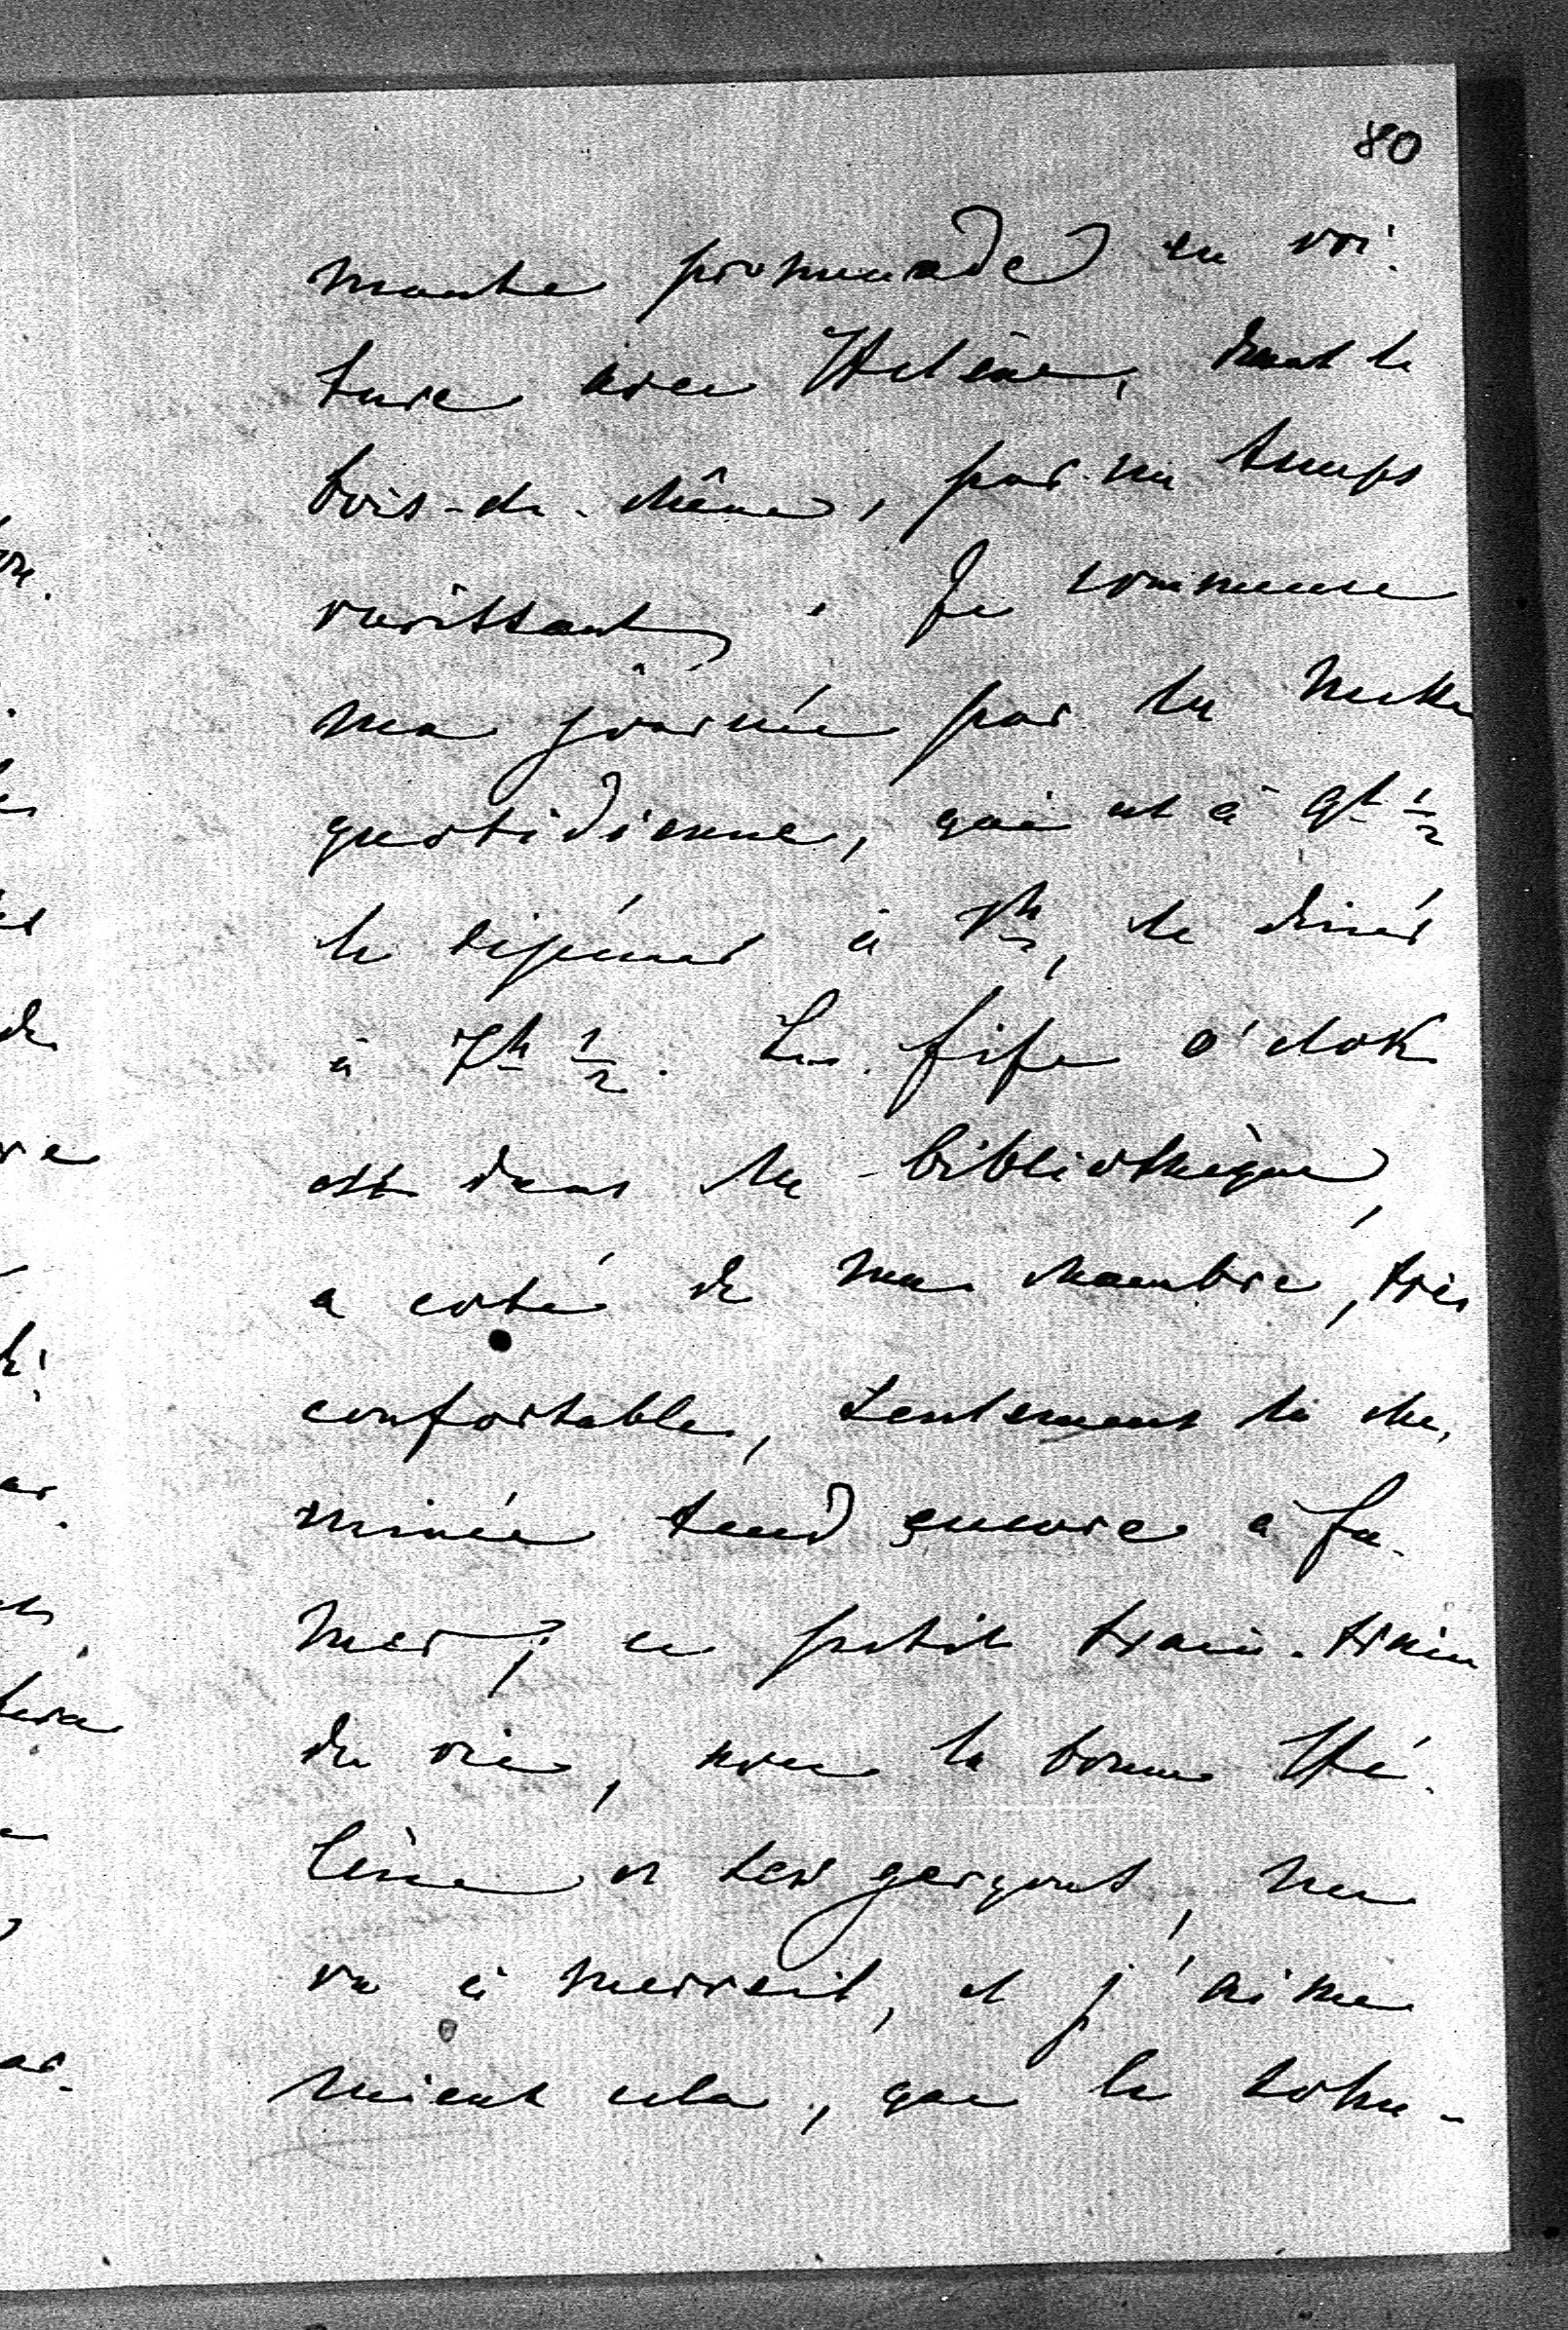 80
mante promenade en voi-
ture avec Hélène, dans le
bois-de-chêne, par un temps
ravissant. Je commence
ma journée par la messe
quotidienne, qui est à 9h 1/2
le déjeuner à 1h, le diner
à 7h 1/2. Le fife o'clok
est dans la bibliothèque,
a coté de ma chambre, très
confortable, seulement la che-
minée tend encore à fu-
mer; ce petit train-train
de vie, avec la bonne Hé-
lène et ses garçons, me
va à merveil, et j'aime
mieux cela, que le tohu-